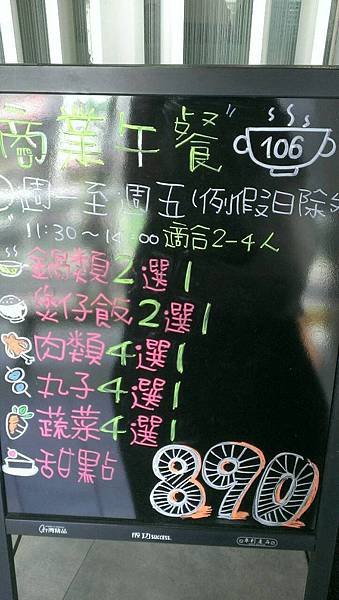 商業午餐 106
週一至週五(例假日除外
11:30~14:00 適合2-4人
鍋類2選1
煲仔飯2選1
肉類4選1
丸子4選1
蔬菜4選1
甜點
890
成功success